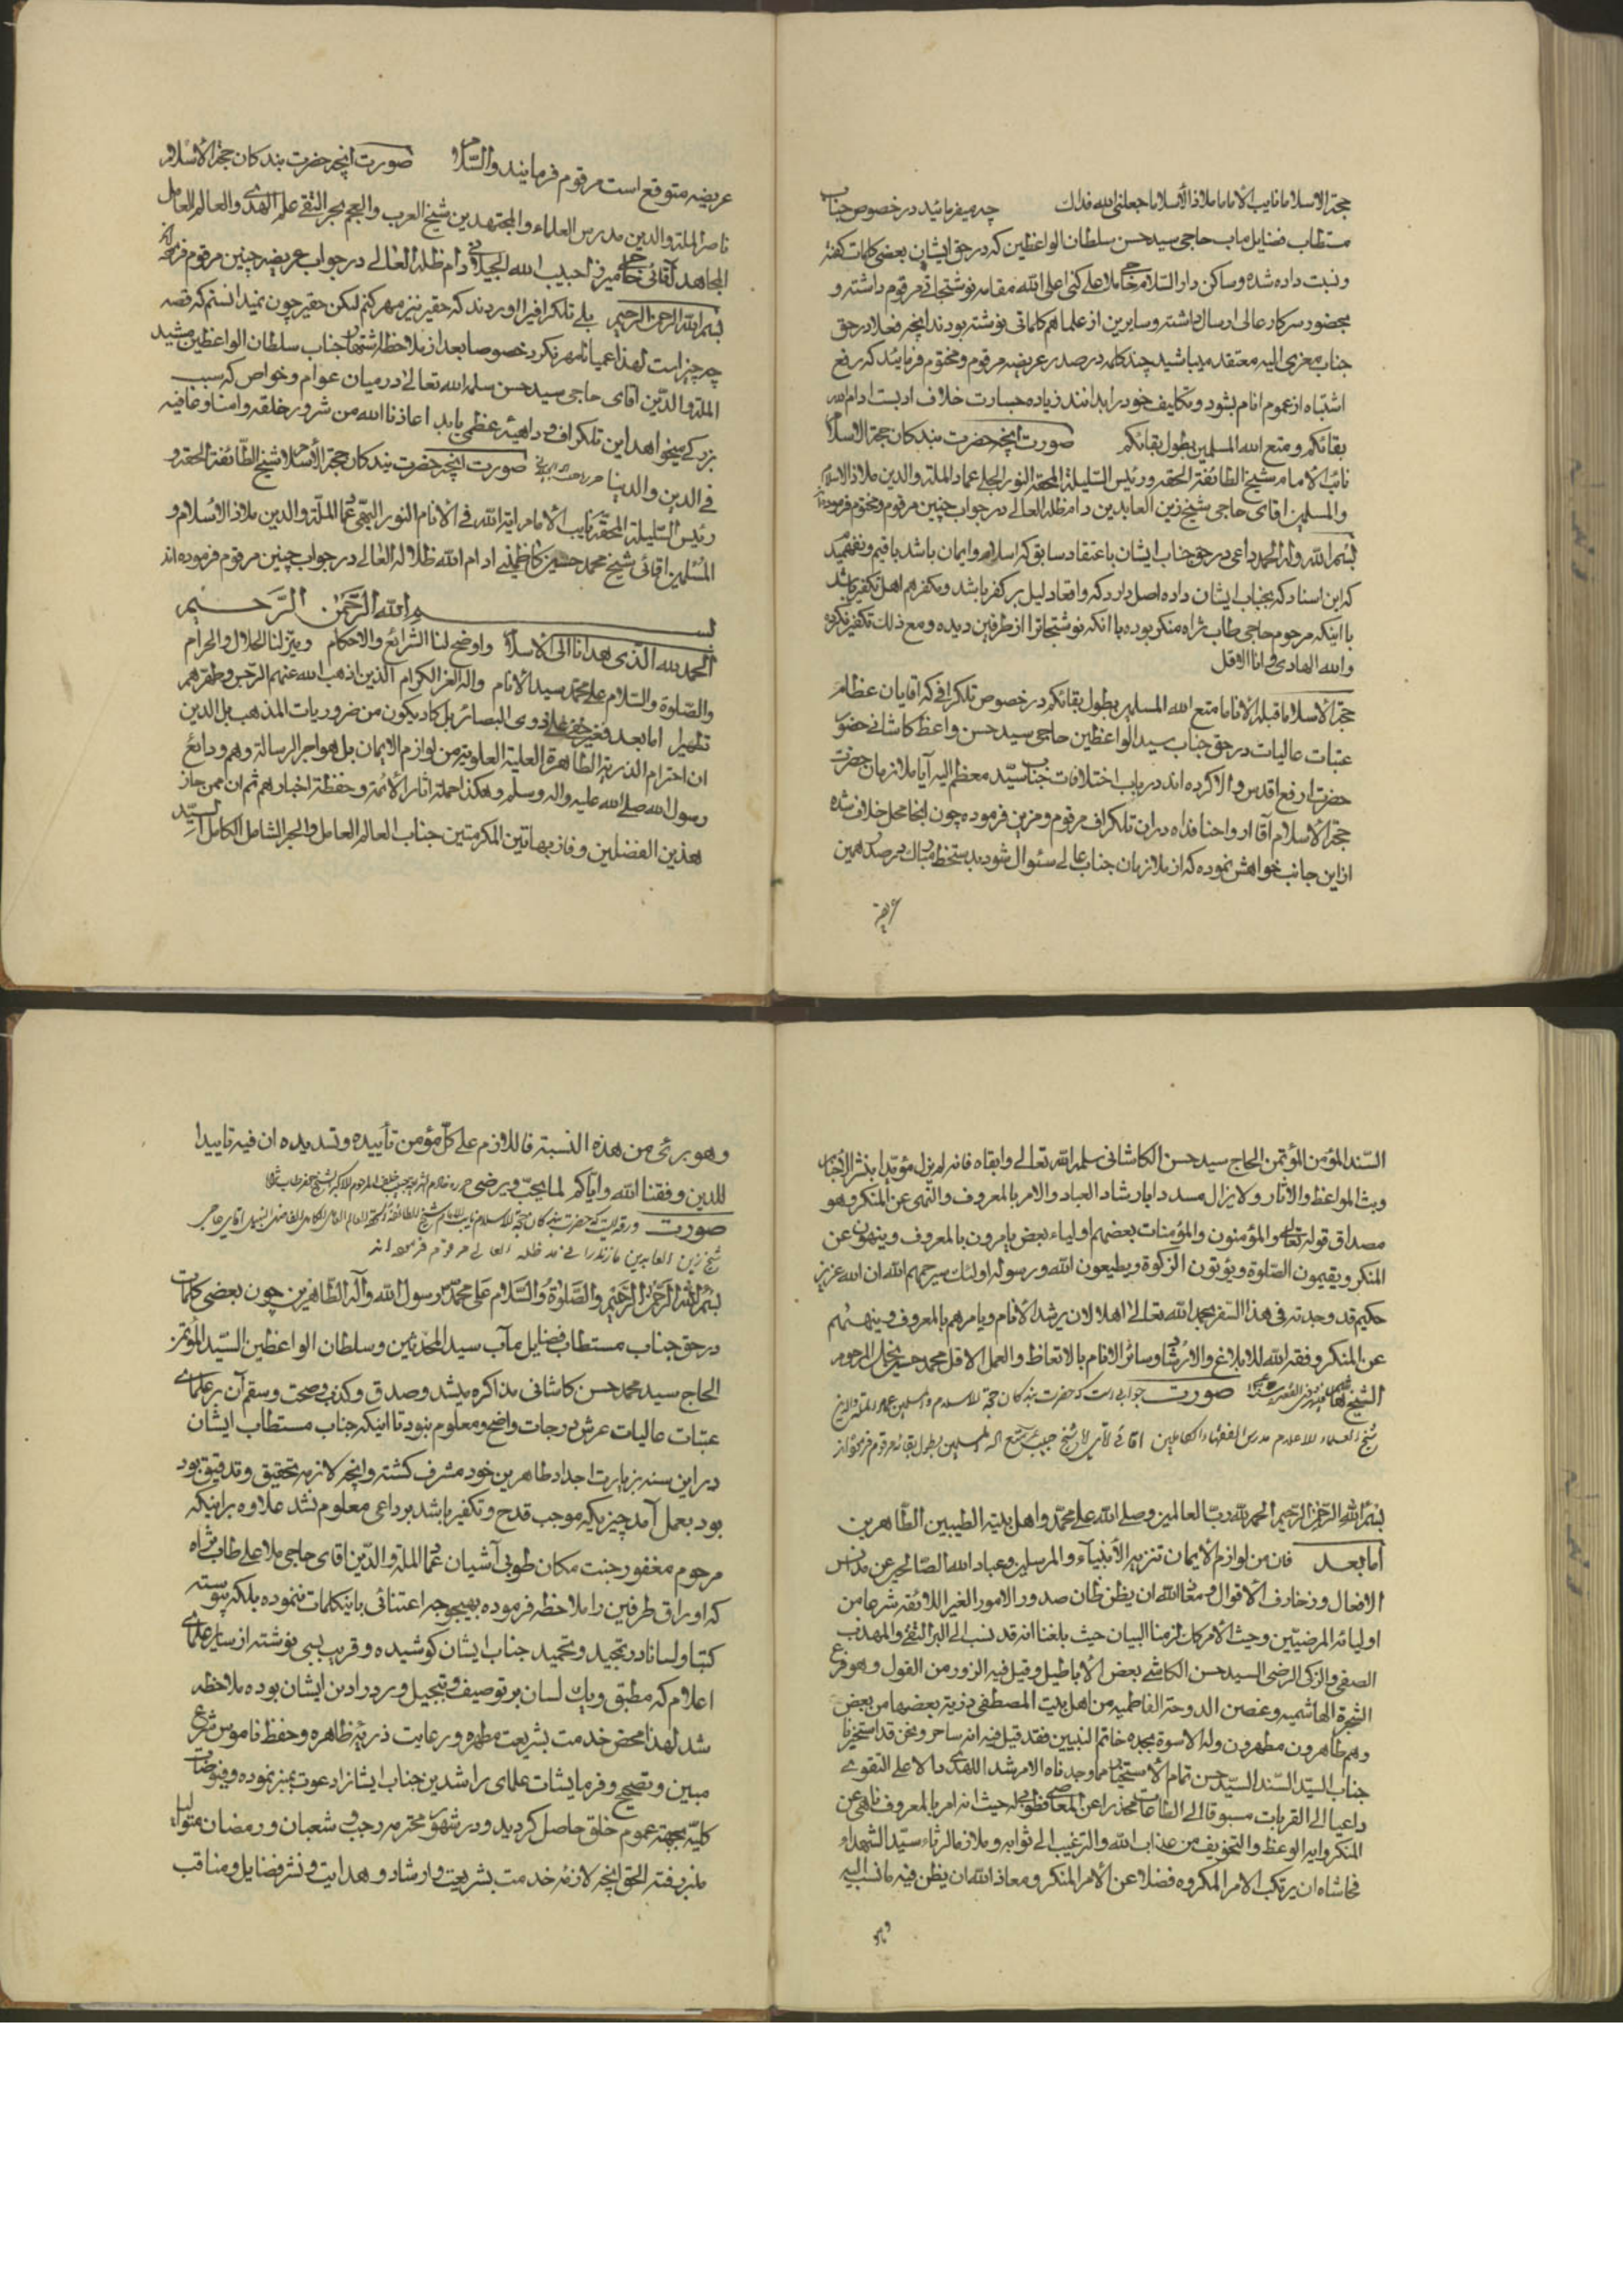 حجة الاسلاما نایب الاماما ملاذ الاسلاما جعلنی الله فداك چه میفرمائید در خصوص جناب
مستطاب فضایل ماب حاجی سید حسن سلطان الواعظین که در حق ایشان بعضی کلمات گفته
و نسبت داده شده و ساکن دار السلام حاجی ملا علی کنی اعلی الله مقامه نوشتجاتی مرقوم داشته و
بحضور سرکار عالی ارسال داشته و سایرین از علما هم کلماتی نوشته بودند انچه فعلا در حق
جناب معزی الیه معتقد میباشید چند کلمه در صدر عریضه مرقوم و مختوم فرمائید که رفع
اشتباه از عموم انام بشود و تکالیف خود را بدانند زیاده جسارت خلاف ادبست ادام الله
بقائکم و متع الله المسلمین بطول بقائکم صورت انچه حضرت بندکان حجة الاسلام
نائب الامام شیخ الطائفة الحقه و رئیس السلیلة المحقه النور الجلی عماد الملة والدین ملاذ الاسلام
والمسلمین اقای حاجی شیخ زین العابدین دام ظله العالی در جواب چنین مرقوم و مختوم فرموده‌اند
بسم الله وله الحمد داعی در حق جناب ایشان باعتقاد سابق که اسلام و ایمان باشد باقیم و نفهمید
که این اسناد که بجناب ایشان داده اصل دارد که واقعا دلیل بر کفر باشد و مکفر هم اهل تکفیر باشد
با اینکه مرحوم حاجی طاب ثراه منکر بوده با انکه نوشتجاترا از طرفین دیده و مع ذلك تکفیر نکرده
والله الهادی وانا الاقل
حجة الاسلاما قبلة الاناما متع الله المسلمین بطول بقائکم در خصوص تلکرافی که اقایان عظام
عتبات عالیات در حق جناب سید الواعظین حاجی سید حسن واعظ کاشانی حضور
حضرت ارفع اقدس والا کرده اند در باب اختلافات جناب سید معظم الیه آیا ملازمان حضرت
حجة الاسلام آقا ارواحنا فداه در ان تلکراف مرقوم و مزین فرموده چون اینجا محل خلاف شده
از این جانب خواهش نموده که از ملازمان جناب عالی سئوال شود بدستخط مبارك در صدر همین
عریضه
عریضه متوقع است مرقوم فرمایند والسلام صورت انچه حضرت بندکان حجة الاسلام
ناصر الملة والدین مدرس العلماء والمجتهدین شیخ العرب والعجم بحر التقی علم الهدی والعالم العامل
المجاهد آقائی حاجی میرزا حبیب الله الجیلانی دام ظله العالی در جواب عریضه چنین مرقوم فرموده اند
بسم الله الرحمن الرحیم بلی تلکرافیرا اوردند که حقیر نیز مهر کنم لیکن حقیر چون نمیدانستم که قصه
چه چیز است لهذا عمیانا مهر نکرد خصوصا بعد از ملاحظه اشتهار جناب سلطان الواعظین مشید
الملة والدین اقای حاجی سید حسن سلمه الله تعالی در میان عوام و خواص که سبب
بزرکی میخواهد این تلکراف و داهیه عظمی باید اعاذنا الله من شرور خلقه وامنا وعافیه
فی الدین والدنیا صورت انچه حضرت بندکان حجة الاسلام شیخ الطائفة الحقه و
رئیس السلیلة المحقه نایب الامام ایة الله فی الانام النور البهی عماد الملة والدین ملاذ الاسلام و
المسلمین اقائی شیخ محمد حسین کاظمینی ادام الله ظلاله العالی در جواب چنین مرقوم فرموده اند
بسم الله الرحمن الرحیم
الحمد لله الذی هدانا الی الاسلام واوضح لنا الشرائع والاحکام وبین لنا الحلال والحرام
والصلوة والسلام علی محمد سید الانام واله الغر الکرام الذین اذهب الله عنهم الرجس وطهرهم
تطهیرا اما بعد فغیر خفی علی ذوی البصائر بل کاد یکون من ضروریات المذهب بل الدین
ان احترام الذریة الطاهرة العلیة العلویة من لوازم الایمان بل هو اجر الرسالة وهم ودائع
رسول الله صلی الله علیه واله وسلم وهکذا حملة اثار الائمة وحفظة اخبارهم ثم ان ممن حاز
هذین الفضلین وفاز بهاتین المکرمتین جناب العالم العامل والبحر الشامل الکامل السید
السند المؤمن المؤتمن الحاج سید حسن الکاشانی سلمه الله تعالی وابقاه فانه لم یزل مؤیدا بنشر الاخبار
وبث المواعظ والاثار ولا یزال مسددا بارشاد العباد والامر بالمعروف والنهی عن المنکر وهو
مصداق قوله تعالی والمؤمنون والمؤمنات بعضهم اولیاء بعض یامرون بالمعروف وینهون عن
المنکر ویقیمون الصلوة ویؤتون الزکوة ویطیعون الله ورسوله اولئك سیرحمهم الله ان الله عزیز
حکیم قد وجدته فی هذا السفر بحمد الله تعالی اهلا لان یرشد الانام ویامرهم بالمعروف وینهیهم
عن المنکر وفقه الله للابلاغ والارشاد وسائر الانام بالاتعاظ والعمل الاقل محمد حسین نجل المرحوم
الشیخ صورت جوابی است که حضرت بندکان حجة الاسلام والمسلمین عماد الملة والدین
شیخ العلماء الاعلام مدرس الفقهاء الکاملین اقائی متع الله المسلمین بطول بقائه مرقوم فرموده اند
بسم الله الرحمن الرحیم الحمد لله رب العالمین وصلی الله علی محمد واهل بیته الطیبین الطاهرین
اما بعد فان من لوازم الایمان تنزیه الانبیاء والمرسلین وعباد الله الصالحین عن مدانس
الافعال وزخارف الاقوال ومعاذ الله ان یظن ظان صدور الامور الغیر اللائقه شرعا من
اولیائه المرضیین وحیث الامر کان لزمنا البیان حیث بلغنا انه قد نسب الی البر التقی والمهذب
الصفی والزکی الرضی السید حسن الکاشی بعض الاباطیل وقیل فیه الزور من القول وهو فرع
الشجرة الهاشمیه وغصن الدوحة الفاطمیه من اهل بیت المصطفی ذریة بعضها من بعض
وهم طاهرون مطهرون وله الاسوة بجده خاتم النبیین فقد قیل فیه انه ساحر ونحن قد استخبرنا
جناب السید السند السید حسن تمام الاستخبار فما وجدناه الا مرشدا للهدی دالا علی التقوی
داعیا الی القربات مسبوقا الی الطاعات محذرا عن المعاصی حیث انه امر بالمعروف ناهی عن
المنکر دابه الوعظ والتخویف من عذاب الله والترغیب الی ثوابه وملازما لرثاء سید الشهداء
فحاشاه ان یرتکب الامر المکروه فضلا عن الامر المنکر ومعاذ الله ان یظن فیه ما نسب الیه
وهو بریء من هذه النسبة فاللازم علی کل مؤمن تأییده وتسدیده ان فیه تاییدا
للدین وفقنا الله وایاکم لما یحب ویرضی
صورت ورقه ایست که حضرت بندکان حجة الاسلام نایب الامام شیخ الطائفة
شیخ زین العابدین مازندرانی مد ظله العالی مرقوم فرموده اند
بسم الله الرحمن الرحیم والصلوة والسلام علی محمد رسول الله وآله الطاهرین چون بعضی کلمات
در حق جناب مستطاب فضایل مآب سید المحدثین و سلطان الواعظین السید المؤتمن
الحاج سید محمد حسن کاشانی مذاکره میشد و صدق و کذب و صحت و سقم آن بر علمای
عتبات عالیات عرش درجات واضح و معلوم نبود تا اینکه جناب مستطاب ایشان
در این سنه بزیارت اجداد طاهرین خود مشرف کشته و انچه لازمه تحقیق و تدقیق بود
بود بعمل آمد چیزیکه موجب قدح و تکفیر باشد بر داعی معلوم نشد علاوه بر اینکه
مرحوم مغفور جنت مکان طوبی آشیان عماد الملة والدین اقای حاجی ملا علی طاب ثراه
که اوراق طرفین را ملاحظه فرموده بهیچوجه اعتنائی باینکلمات ننموده بلکه پیوسته
کتبا و لسانا در تمجید و تحمید جناب ایشان کوشیده و قریب بسی نوشته از سایر علمای
اعلام که مطبق و یك لسان بر توصیف و تبجیل و بودن ایشان بوده ملاحظه
شد لهذا محض خدمت بشریعت مطهره و رعایت ذریه طاهره و حفظ ناموس شرع
مبین و تصحیح و فرمایشات علمای راشدین جناب ایشانرا دعوت بمنبر نموده و فیوضات
کلیه بجهة عموم خلق حاصل کردید و در شهور محترمه رجب و شعبان و رمضان متوالیا
منبر رفته الحق انچه لازمه خدمت بشریعت و ارشاد و هدایت و نشر فضایل و مناقب